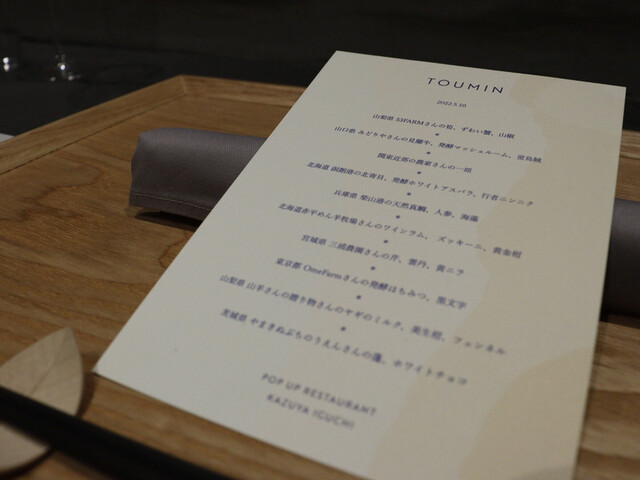 TOUMIN
2022.5.10
山梨県 53FARMさんの筍、ずわい蟹、山椒
山口県 みどりやさんの見蘭牛、発酵マッシュルーム、蛍烏賊
関東近郊の農家さんの一皿
北海道 函館港の北寄貝、発酵ホワイトアスパラ、行者ニンニク
兵庫県 柴山港の天然真鯛、人参、海藻
北海道赤平めん羊牧場さんのワインラム、ズッキーニ、黄金柑
宮城県 三浦農園さんの芹、雲丹、黄ニラ
東京都 OmeFarmさんの発酵はちみつ、黒文字
山梨県 山羊さんの贈り物さんのヤギのミルク、美生柑、フェンネル
茨城県 やまきぬぷちのうえんさんの蓬、ホワイトチョコ
POP UP RESTAURANT
KAZUYA IGUCHI